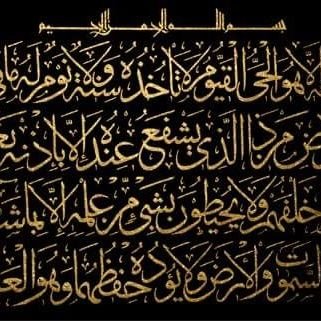 بسم الله الرحمن الرحيم
إلا هو الحي القيوم لا تأخذه سنة ولا نوم له ما
من ذا الذي يشفع عنده إلا بإذنه
خلفهم ولا يحيطون بشيء من علمه إلا بما
السموات والأرض ولا يؤده حفظهما وهو